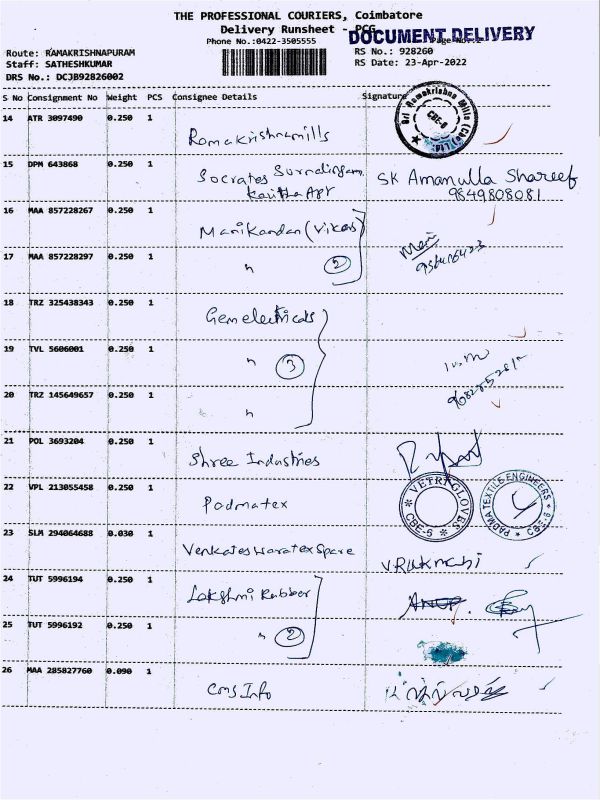 THE PROFESSIONAL COURIERS, Coimbatore
Delivery Runsheet - PCG
DOCUMENT DELIVERY
Phone No.:0422-3505555
Route: RAMAKRISHNAPURAM
RS No.: 928260
Staff: SATHESHKUMAR
RS Date: 23-Apr-2022
DRS No.: DCJB92826002
S No Consignment No Weight PCS Consignee Details Signature
14 ATR 3097490 0.250 1 Ramakrishnamills
Sri Ramakrishna Mills (Cbe) Ltd. CBE-6
15 DPM 643868 0.250 1 Socrates
Kavitha Apt
SK Amanulla Shareef
9849808081
16 MAA 857228267 0.250 1 Manikandan (Vikas)
17 MAA 857228297 0.250 1 " 2
Mani
18 TRZ 325438343 0.250 1 Gem electricals
19 TVL 5606001 0.250 1 " 3
20 TRZ 145649657 0.250 1 "
21 POL 3693204 0.250 1 Shree Industries
22 VPL 213055458 0.250 1 Padmatex
VETRI GLOVES CBE-6
PADMA TEXTILE ENGINEERS CBE-6
23 SLM 294064688 0.030 1 Venkateswaratex Spare
V RUKMANI
24 TUT 5996194 0.250 1 Lakshmi Rubber
25 TUT 5996192 0.250 1 " 2
26 MAA 285827760 0.090 1 Cms Info